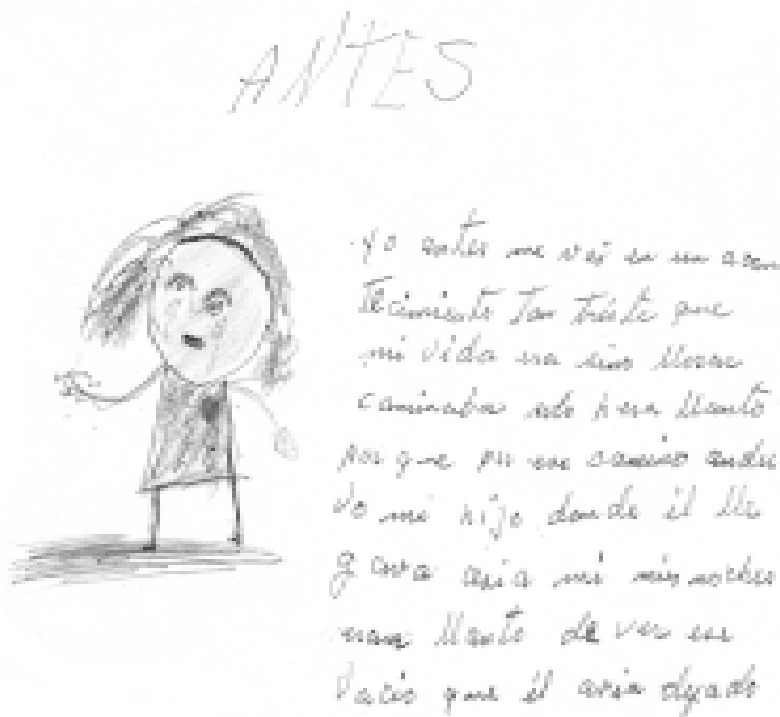 ANTES
yo antes me vei en un acon
tecimiento tan triste que
mi vida era sino llorar
caminaba solo hera llanto
por que en ese camino andu
vo mi hijo donde él lle
gava asia mi mis noches
eran llanto de ver ese
vacio que él avia dejado